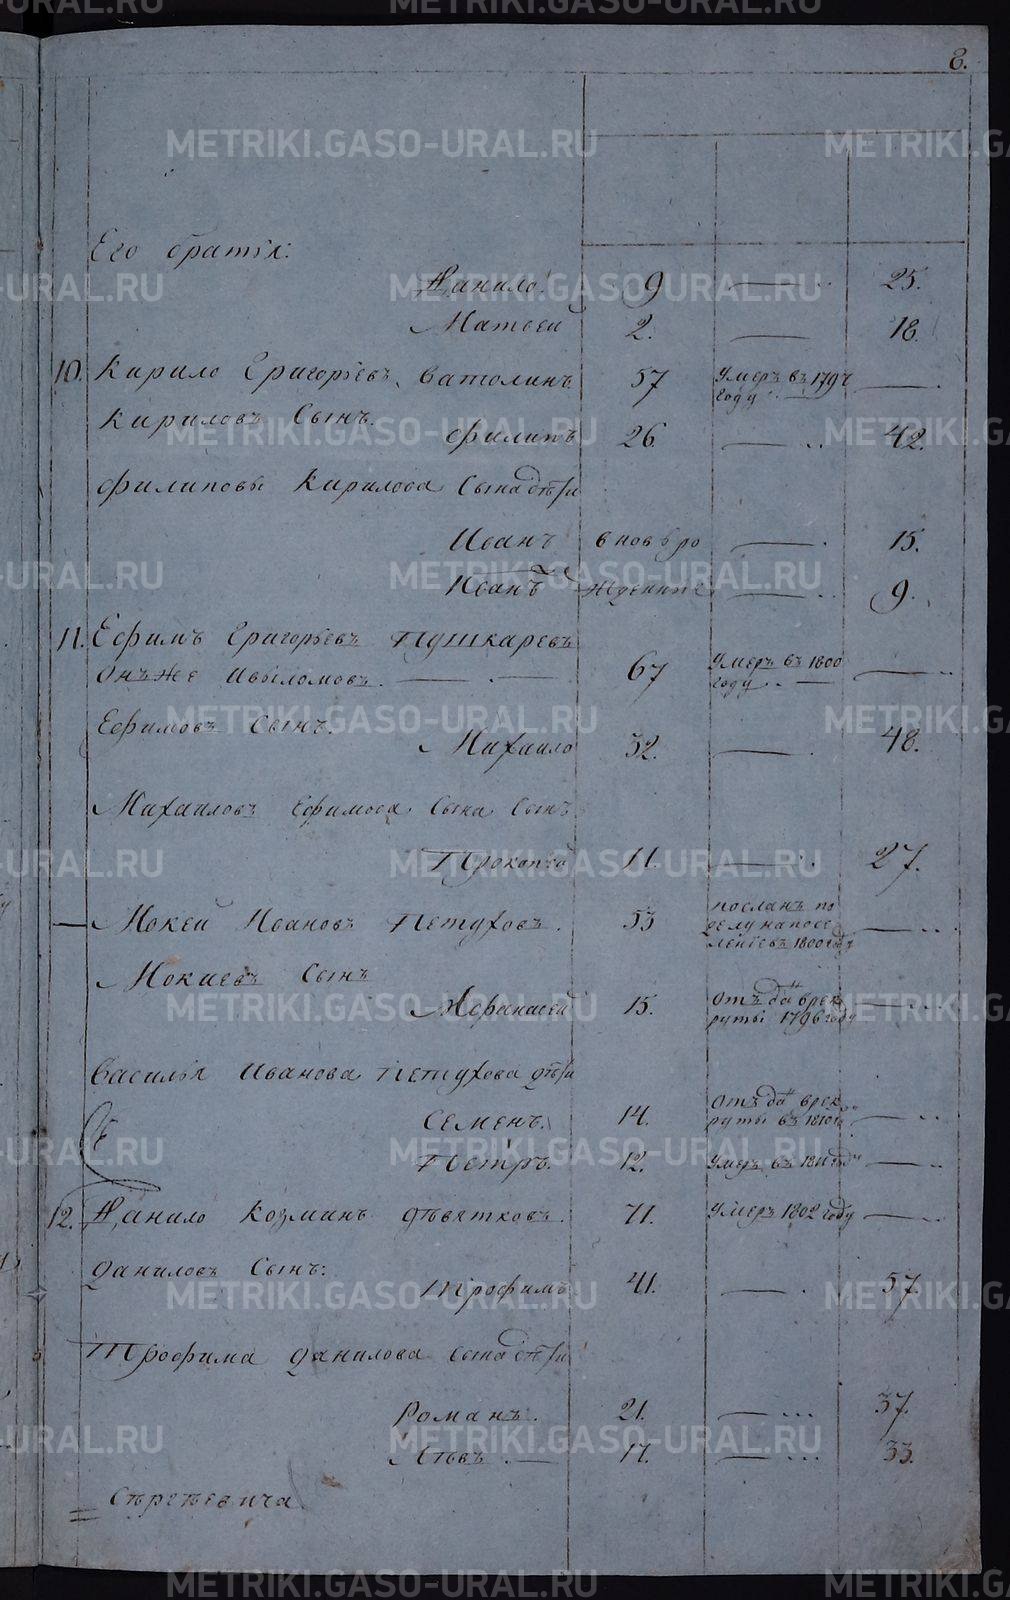 8.
Его братья:
Данило. 9 — 25.
Матвей 2. — 18.
10. Кирило Григорьевъ Ватолинъ 57 умеръ въ 1797 году —
Кириловъ Сынъ.
Филипъ 26. — 42.
Филиповы Кирилова Сына дѣти
Иванъ вновь ро — 15.
Иванъ жденные — 9.
11. Ефимъ Григорьевъ Пушкаревъ
онъ же Ивыломовъ. — 67 умеръ въ 1800 году —
Ефимовъ Сынъ.
Михайло 32. — 48.
Михаиловъ Ефимова Сына Сынъ
Прокопей 11. — 27.
— Мокей Ивановъ Петуховъ. 53 посланъ по делу на посе лениевъ 1800 году —
Мокиевъ Сынъ
Афанасей 15. отъ дан врек руты 1796 году —
Василья Иванова Петухова дѣти
Семенъ. 14. отъ дан врек руты въ 1810 —
Петръ. 12. умеръ въ 1811 году —
12. Данило Козминъ Дѣвятковъ. 71. умеръ 1802 году —
Даниловъ Сынъ:
Трофимъ 41. — 57.
Трофима Данилова Сына дѣти
Романъ. 21. — 37.
Львъ. — 17. — 33.
Сѣргѣевича
METRIKI.GASO-URAL.RU